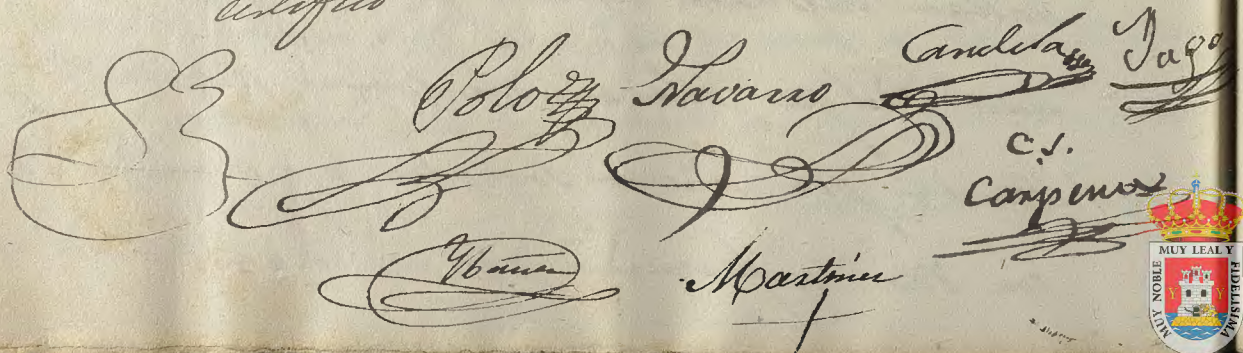 certifico
Polo Navarro Candela Yago
C. J.
Carpena
Ybañez Martinez
MUY NOBLE MUY LEAL Y FIDELISIMA
Y Y